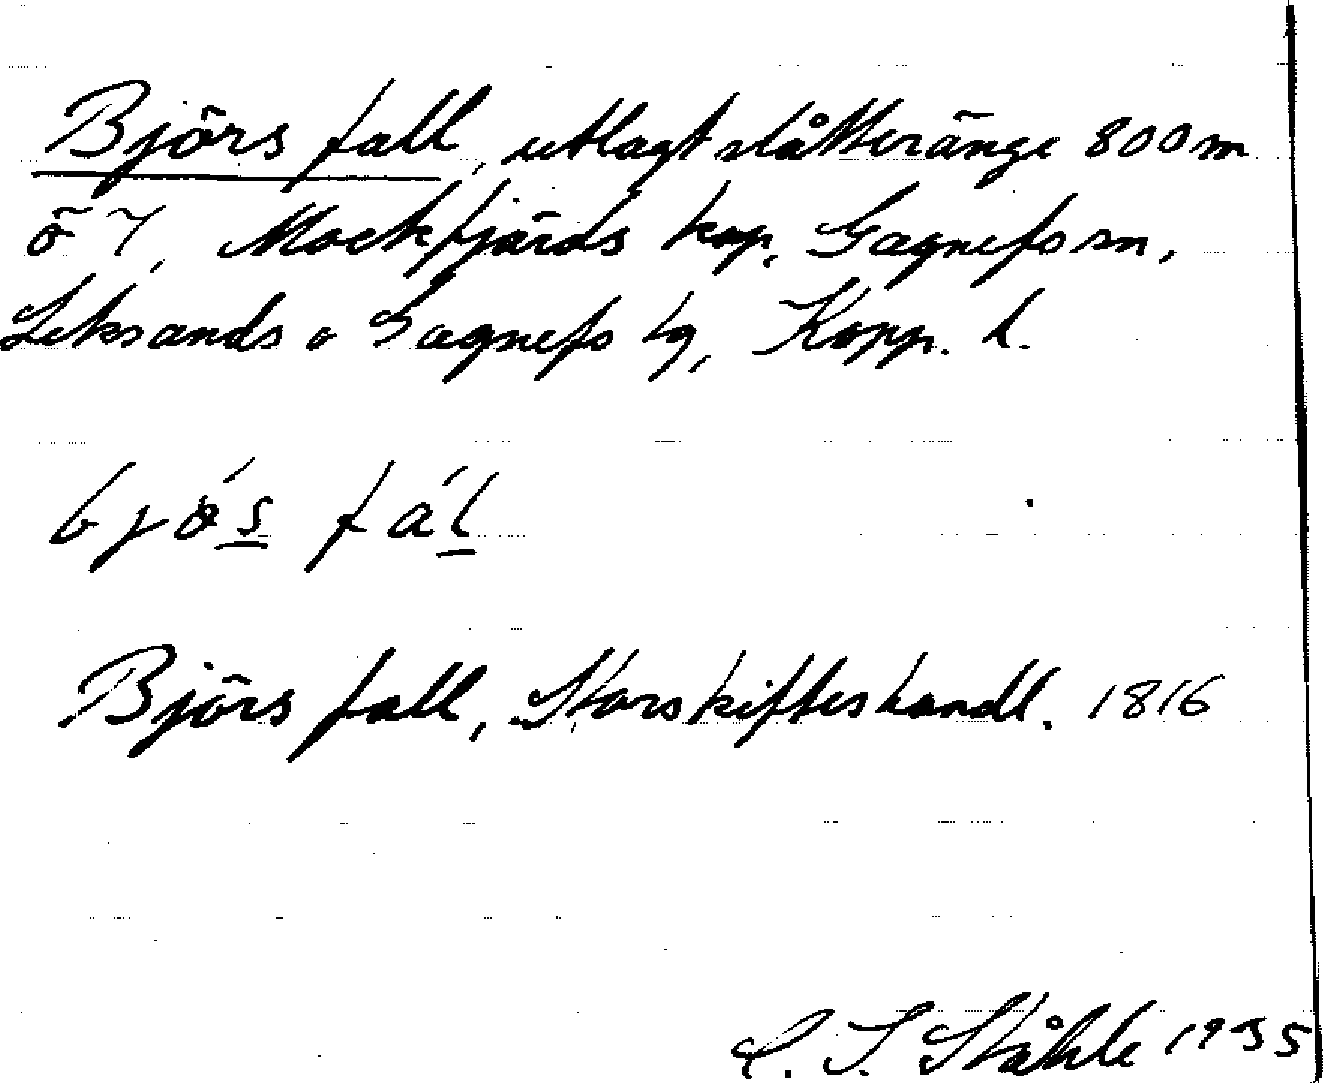 Björs fall, utlagt slåtteränge 800 m
ö 7, Mockfjärds kap, Gagnefs sn,
Leksands o Gagnefs tg, Kopp. l.
bjǿs fál
Björs fall, Storskifteshandl. 1816
C. I. Ståhle 1935